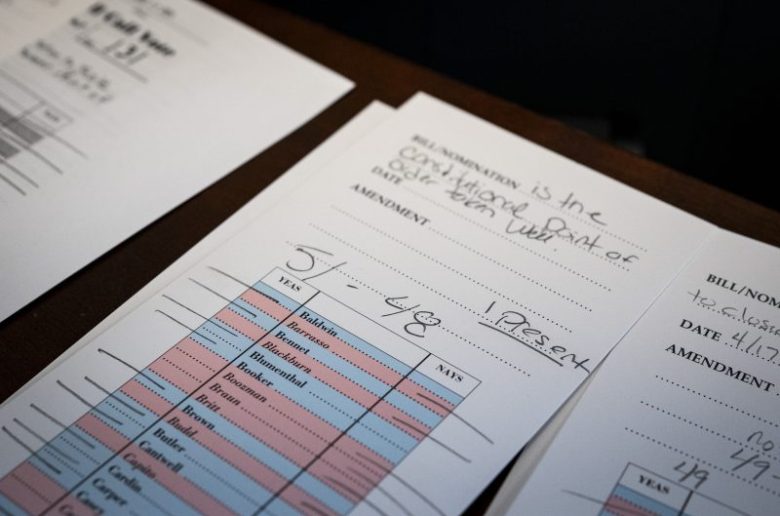 ll Call Vote
131
NAYS
BILL/NOMINATION is the
Constitutional Point of
Order taken Well
DATE
AMENDMENT
51 - 48
1 Present
YEAS
NAYS
Baldwin
Barrasso
Bennet
Blackburn
Blumenthal
Booker
Boozman
Braun
Britt
Brown
Budd
Butler
Cantwell
Capito
Cardin
Carper
Casey
BILL/NOM
to close
DATE 4/17
AMENDMENT
no
49
49
YEAS